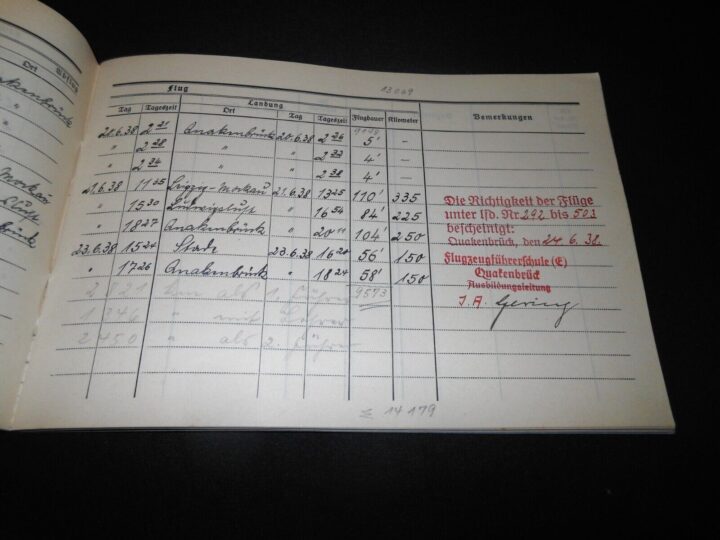 13069
Ort
Flug
Landung
Tag Tageszeit Ort Tag Tageszeit Flugdauer Kilometer Bemerkungen
20.6.38 2 21 Quakenbrück 20.6.38 2 26 5' –
" 2 28 " " 2 32 4' –
" 2 34 " " 2 38 4' –
21.6.38 11 25 Leipzig-Mockau 21.6.38 13 25 110' 335
" 15 30 Ludwigslust " 16 54 84' 225
" 18 27 Quakenbrück " 20 11 104' 250
23.6.38 15 24 Stade 23.6.38 16 20 56' 150
" 17 26 Quakenbrück " 18 24 58' 150
Die Richtigkeit der Flüge
unter lfd. Nr. 292 bis 503
bescheinigt:
Quakenbrück, den 24.6.38.
Flugzeugführerschule (E)
Quakenbrück
Ausbildungsleitung
I.A. Gering
9593
2821 km als 1. Führer
1346 " mit Lehrer
2450 " als 2. Führer
Σ 14179